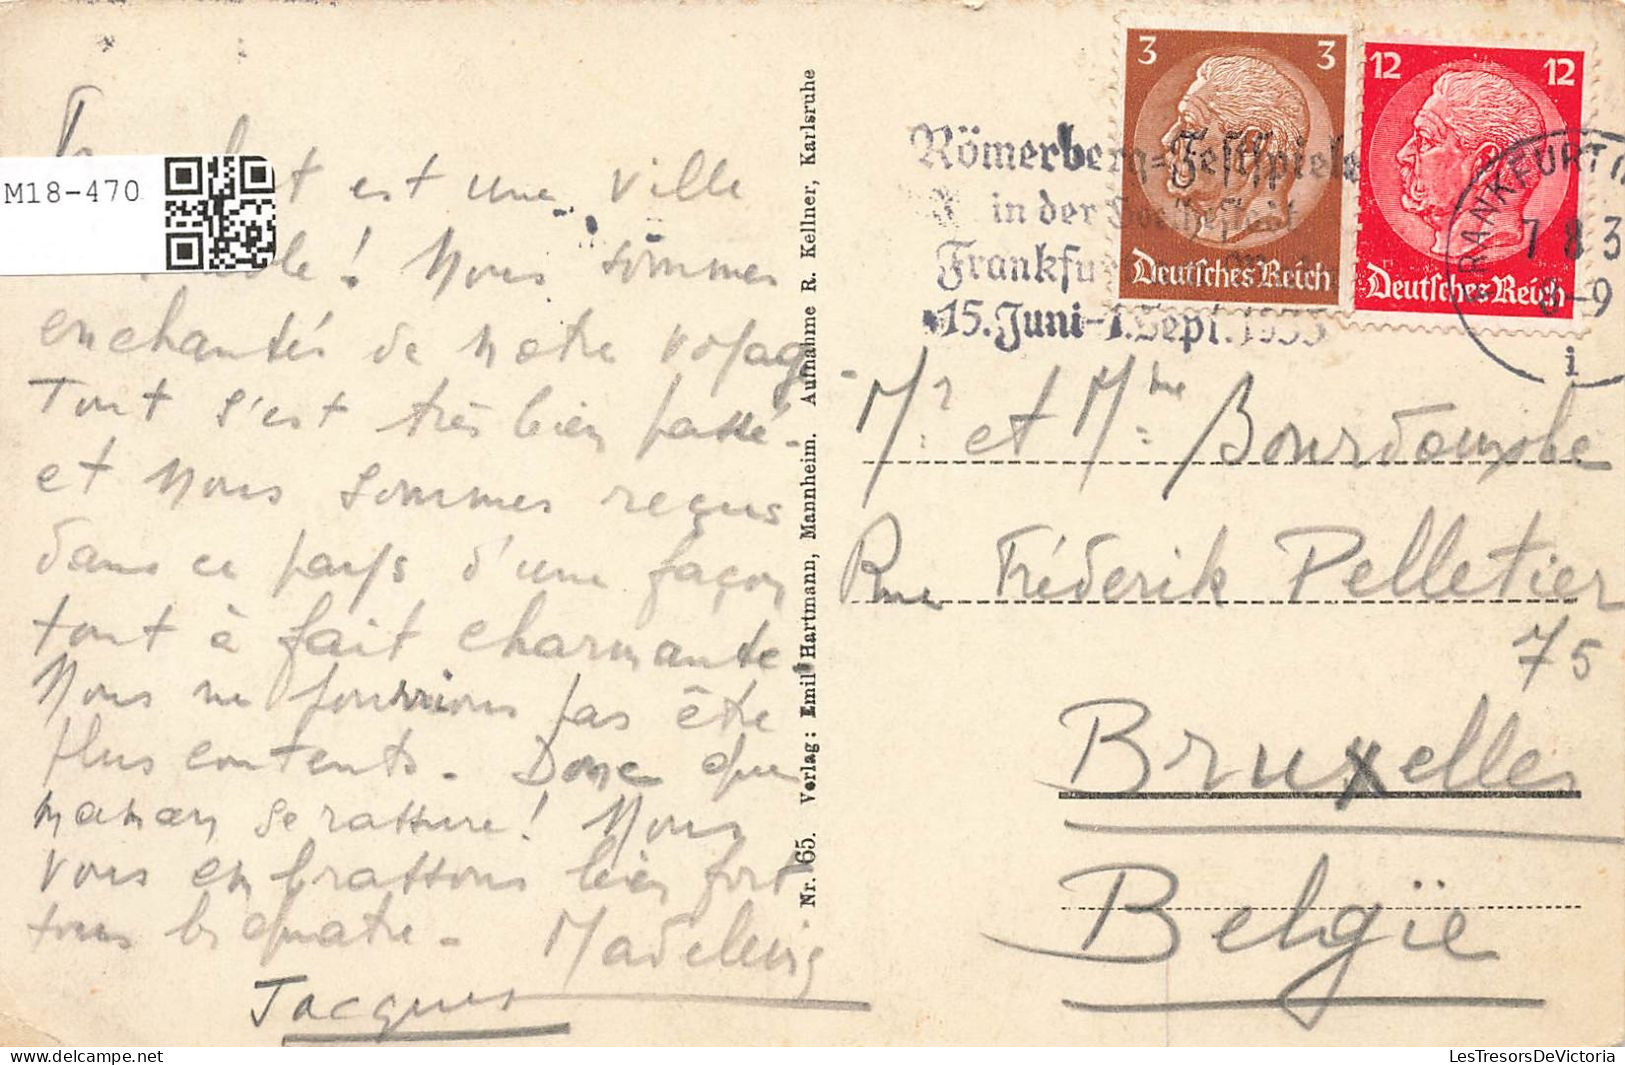 M18-470
est une ville
! Nous sommes
enchantés de notre voyage
Tout s'est très bien passé.
et nous sommes reçus
dans ce pays d'une façon
tout à fait charmante
Nous ne pourrions pas être
plus contents. Donc que
maman se rassure! Nous
vous embrassons bien fort
tous les quatre. Madeleine
Jacques
Nr. 65. Verlag: Emil Hartmann, Mannheim. Aufnahme R. Kellner, Karlsruhe
Römerberg=Festspiele
in der
Frankfu
15. Juni-1. Sept. 1935
3 3
Deutsches Reich
12 12
Deutsches Reich
FRANKFURT
7 8 3
8-9
i
Mr. et Mme.
Rue Fréderik Pelletier
75
Bruxelles
Belgïe
LesTresorsDeVictoria